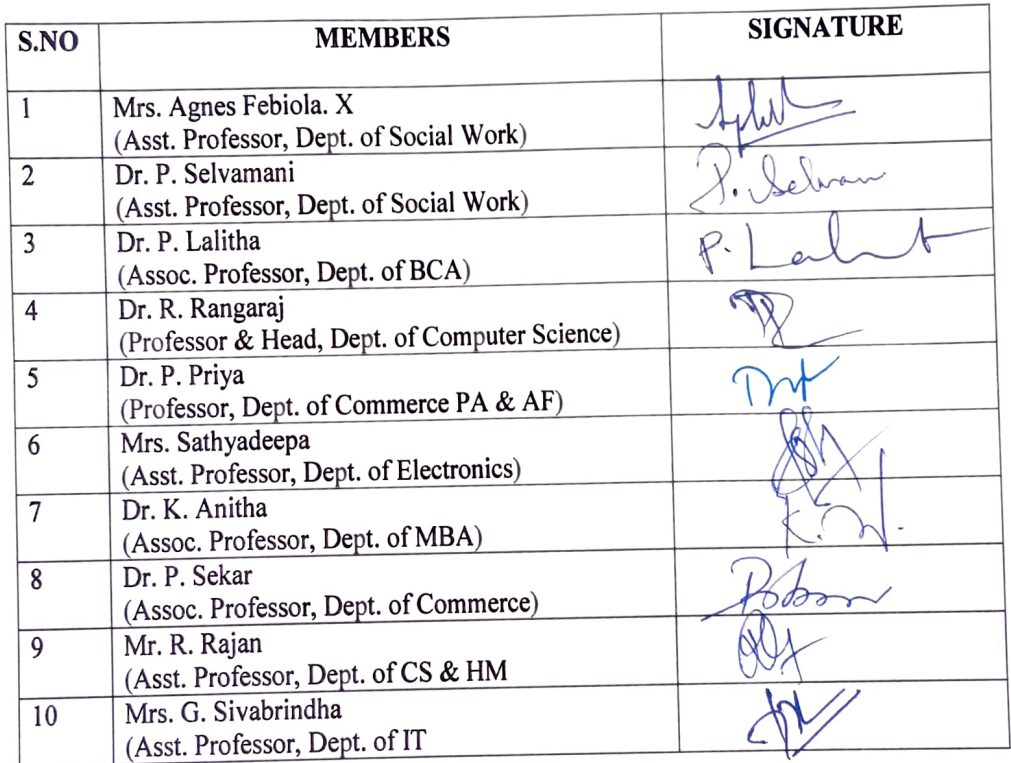 S.NO MEMBERS SIGNATURE
1 Mrs. Agnes Febiola. X
(Asst. Professor, Dept. of Social Work)
2 Dr. P. Selvamani P. Selvam
(Asst. Professor, Dept. of Social Work)
3 Dr. P. Lalitha P. Lalit
(Assoc. Professor, Dept. of BCA)
4 Dr. R. Rangaraj
(Professor & Head, Dept. of Computer Science)
5 Dr. P. Priya
(Professor, Dept. of Commerce PA & AF)
6 Mrs. Sathyadeepa
(Asst. Professor, Dept. of Electronics)
7 Dr. K. Anitha
(Assoc. Professor, Dept. of MBA)
8 Dr. P. Sekar
(Assoc. Professor, Dept. of Commerce)
9 Mr. R. Rajan
(Asst. Professor, Dept. of CS & HM
10 Mrs. G. Sivabrindha
(Asst. Professor, Dept. of IT